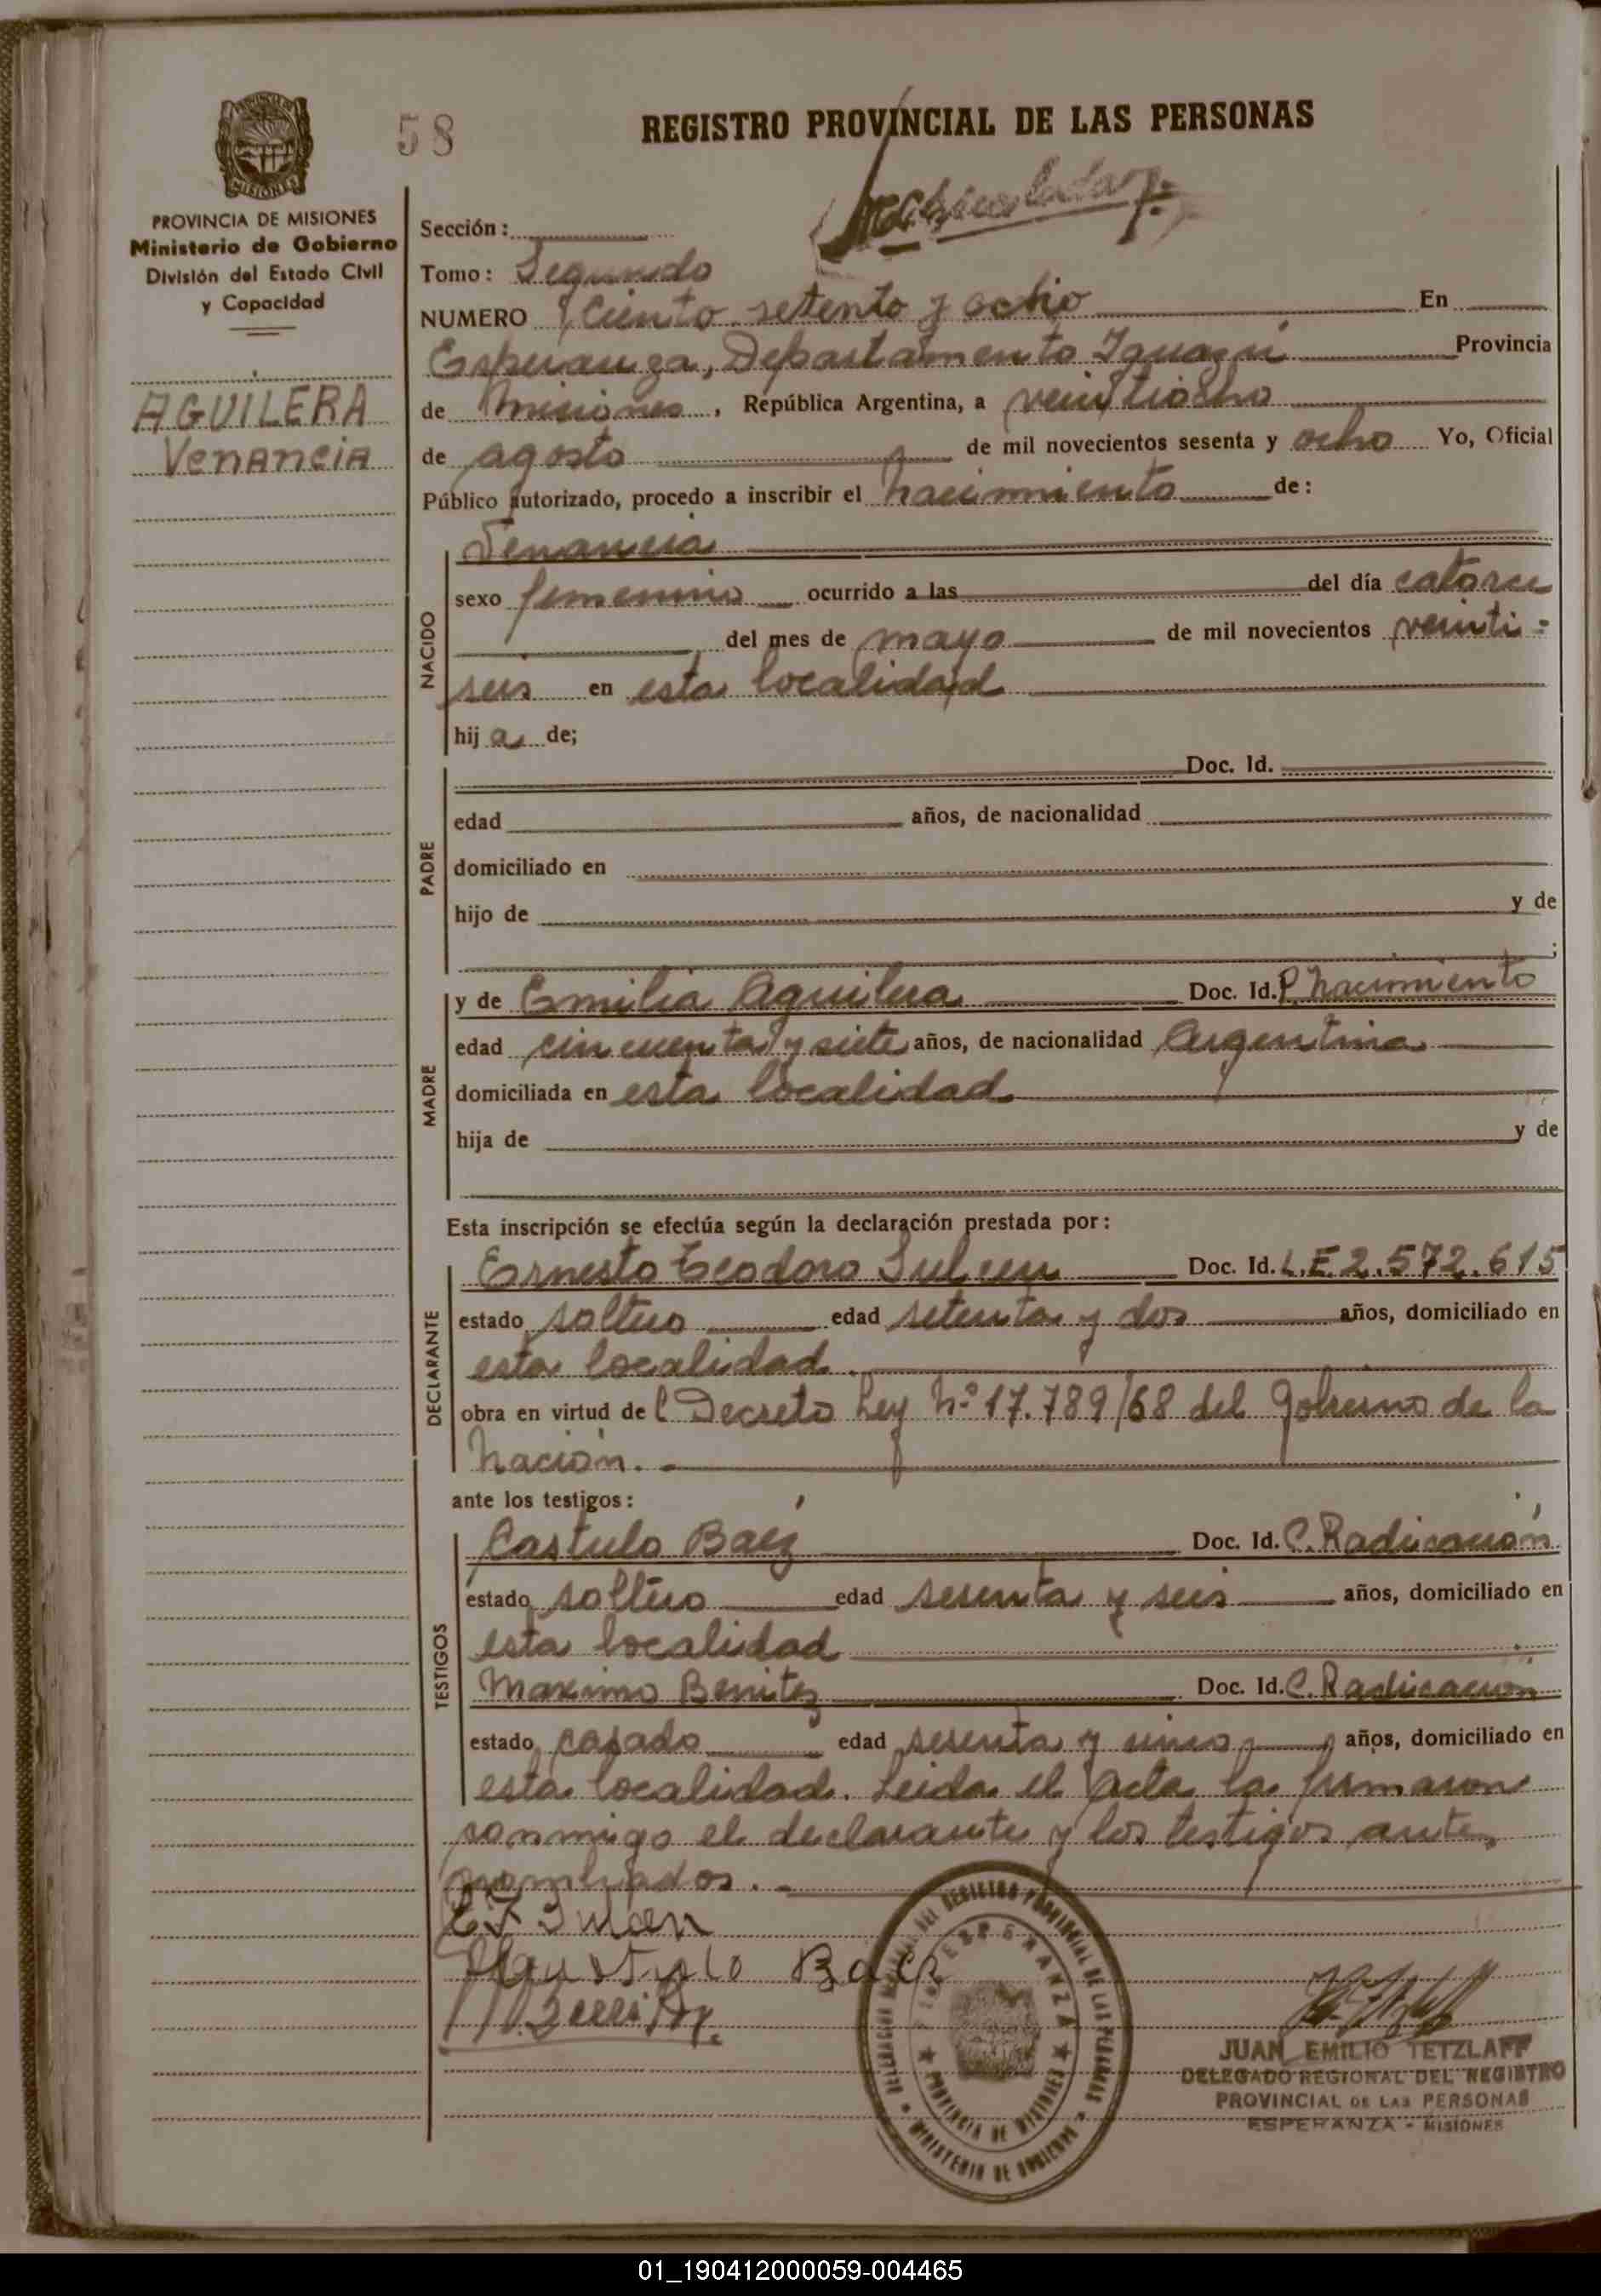 58
REGISTRO PROVINCIAL DE LAS PERSONAS
PROVINCIA DE MISIONES
Ministerio de Gobierno
División del Estado Civil
y Capacidad
AGUILERA
Venancia
Sección:
Tomo: Segundo
NUMERO Ciento setenta y ocho En
Esperanza, Departamento Iguazú Provincia
de Misiones, República Argentina, a veintiocho
de agosto de mil novecientos sesenta y ocho Yo, Oficial
Público autorizado, procedo a inscribir el nacimiento de:
NACIDO
Venancia
sexo femenino ocurrido a las del día catorce
del mes de mayo de mil novecientos veinti=
seis en esta localidad
hija de;
PADRE
Doc. Id.
edad años, de nacionalidad
domiciliado en
hijo de y de
;
MADRE
y de Emilia Aguilera Doc. Id. P. nacimiento
edad cincuenta y siete años, de nacionalidad Argentina
domiciliada en esta localidad
hija de y de
Esta inscripción se efectúa según la declaración prestada por:
DECLARANTE
Ernesto Teodoro Doc. Id. L.E 2.572.615
estado soltero edad setenta y dos años, domiciliado en
esta localidad.
obra en virtud del Decreto Ley Nº 17.789/68 del Gobierno de la
Nación.
ante los testigos:
TESTIGOS
Castulo Baez Doc. Id. C. Radicación
estado soltero edad sesenta y seis años, domiciliado en
esta localidad
Maximo Benitez Doc. Id. C. Radicación
estado casado edad sesenta y uno años, domiciliado en
esta localidad. Leida el Acta la firmaron
conmigo el declarante y los testigos ante
nombrados.
Baez
DEL REGISTRO PROVINCIAL DE LAS PERSONAS
ESPERANZA
PROVINCIA DE MISIONES
MINISTERIO DE GOBIERNO
JUAN EMILIO TETZLAFF
DELEGADO REGIONAL DEL REGISTRO
PROVINCIAL DE LAS PERSONAS
ESPERANZA - MISIONES
01_190412000059-004465